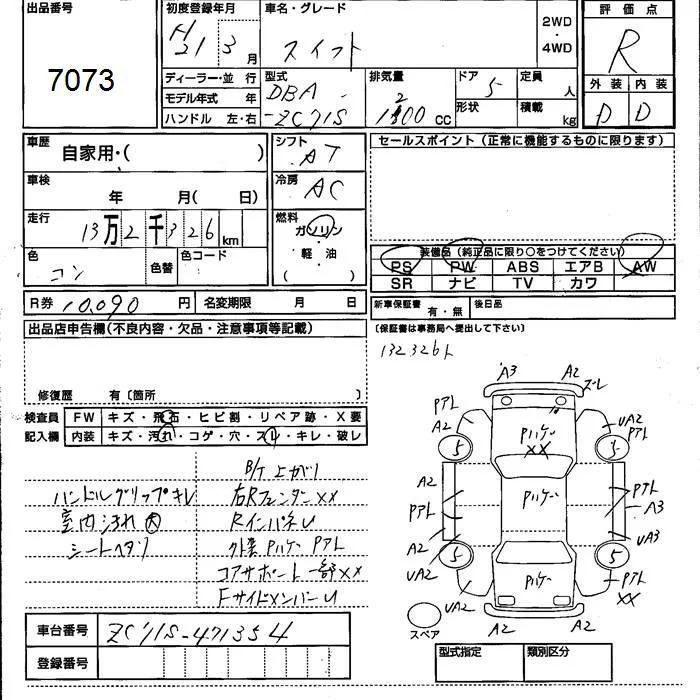 出品番号
7073
初度登録年月
H 21 3 月
車名・グレード
スイフト
2WD
・
4WD
評価点
R
外装 内装
D D
ディーラー・並 行
モデル年式 年
ハンドル 左・右
型式
DBA
-ZC71S
排気量
cc
ドア 5
形状
定員 人
積載 kg
車歴
自家用・( )
車検
年 月( 日)
走行
13万2千326km
色
コン
色替
色コード
シフト
AT
冷房
AC
燃料
ガソリン
・
軽・油
( )
セールスポイント(正常に機能するものに限ります)
装備品(純正品に限り○をつけてください)
PS PW ABS エアB AW
SR ナビ TV カワ
R券 10,090 円 名変期限 月 日
新車保証書 有・無 後日品
(保証書は事務局へ提出して下さい)
132326k
出品店申告欄(不良内容・欠品・注意事項等記載)
修復歴 有〔箇所 〕
検査員 FW キズ・飛石・ヒビ割・リペア跡・X要
記入欄 内装 キズ・汚れ・コゲ・穴・スレ・キレ・破レ
B/T上がり
ハンドルグリップキレ
右Rフェンダー××
室内汚れ大
RインパネU
シートヘタリ
外装 Pハゲー PアL
コアサポート一部××
FサイドメンバーU
A3 A2 ズレ
PアL
A2
UA2
PアL
Pハゲー
××
5 5
A2
PアL
Pハゲー
PアL
A3
A2
UA3
UA2
5 5
Pハゲー
PアL
××
UA2
A2 A2
スペア
車台番号 ZC71S-471354
登録番号
型式指定 類別区分